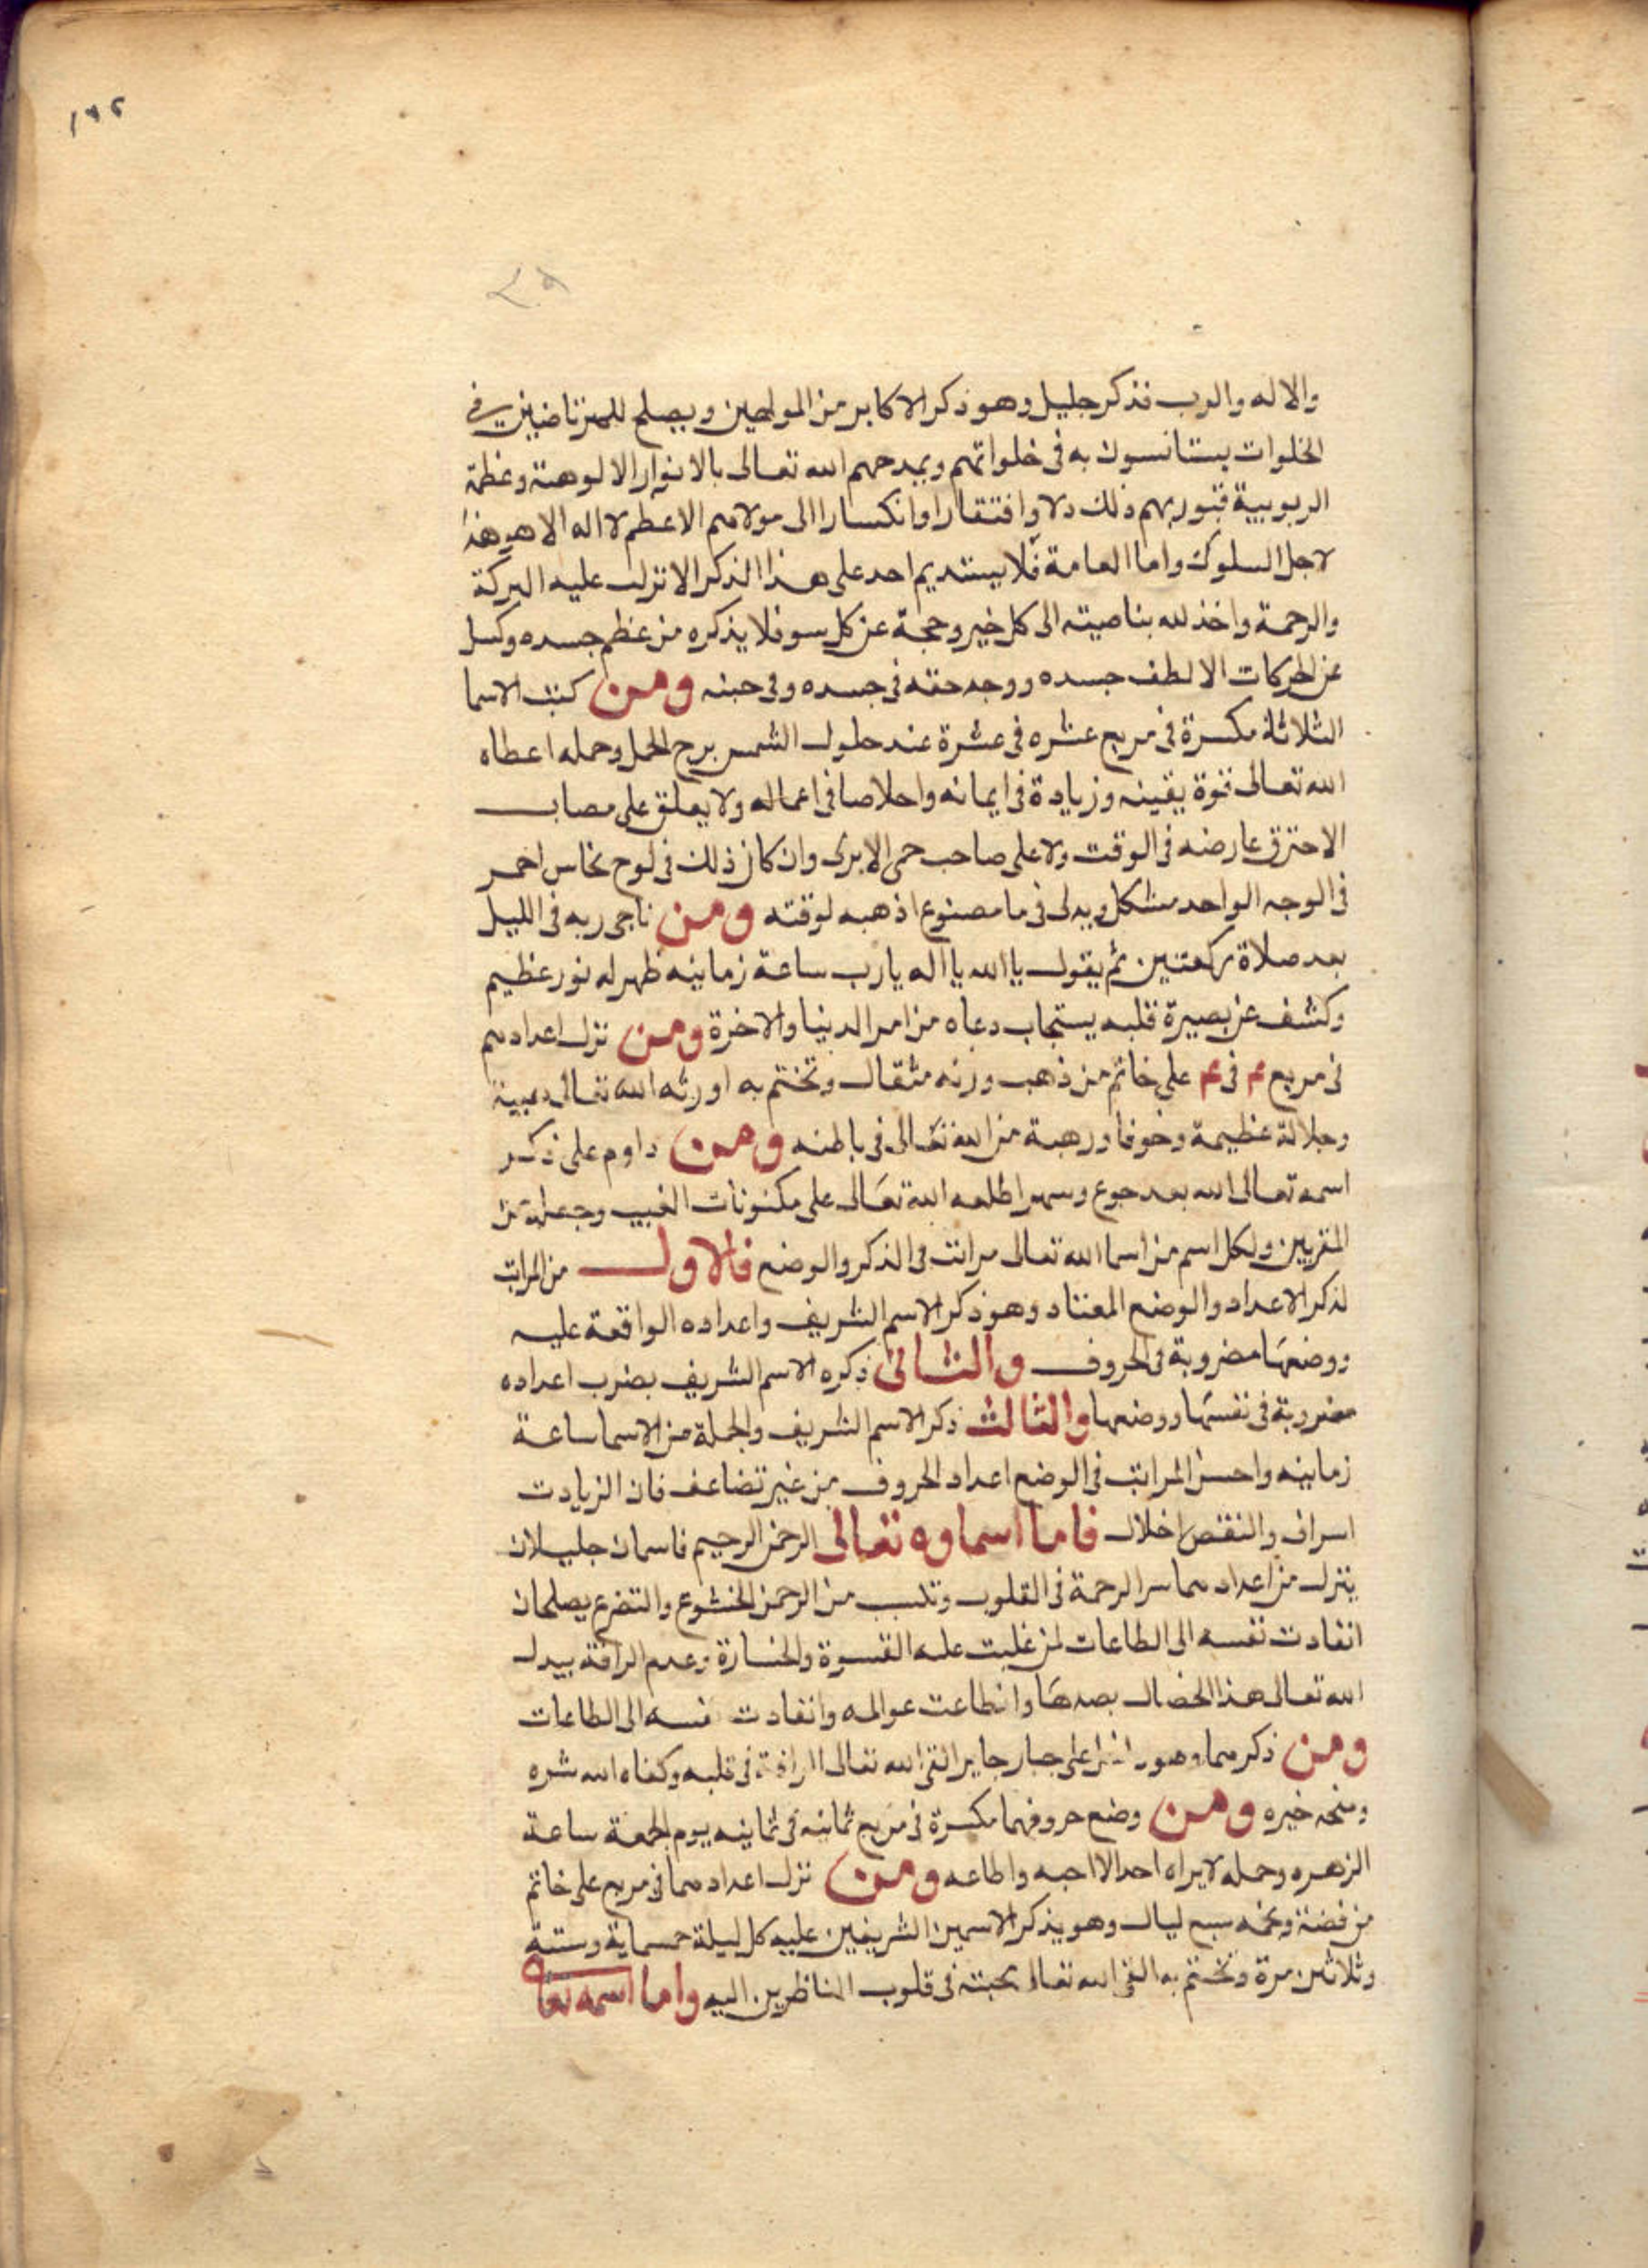 ١٣٢
والاله والرب فذكر جليل وهو ذكر الاكابر من المولهين ويصلح للمرتاضين في
الخلوات يستانسون به في خلواتهم ويمدحهم الله تعالى بالانوار الالوهية وعظمة
الربوبية فيورثهم ذلك ذلا وافتقارا وانكسارا الى مولاهم الاعظم لا اله الا هو هذا
لاجل السلوك واما العامة فلا يستديم احد على هذا الذكر الا نزلت عليه البركة
والرحمة واخذ لله بناصيته الى كل خير وحجبه عن كل سو فلا يذكره من عظم جسده وكسل
عن الحركات الا لطف جسده ووجد خفة في جسده وفي جنبه ومن كتب الاسما
الثلاثة مكسرة في مربع عشره في عشرة عند حلول الشمس برج الحمل وحمله اعطاه
الله تعالى قوة يقينه وزيادة في ايمانه واخلاصا في اعماله ولا يعلق على مصاب
الا حترق عارضه في الوقت ولا على صاحب حمى الا برى وان كان ذلك في لوح نحاس احمر
في الوجه الواحد مشكل ويدلى في ما مصنوع اذهبه لوقته ومن ناجى ربه في الليل
بعد صلاة ركعتين ثم يقول يا الله يا اله يا رب ساعة زمانيه ظهر له نور عظيم
وكشف عن بصيرة قلبه يستجاب دعاه من امر الدنيا والاخرة ومن نزل اعدادهم
في مربع ٤ في ٤ على خاتم من ذهب وزنه مثقال وتختم به اورثه الله تعالى هيبة
وجلالة عظيمة وخوفا ورهبة من الله تعالى في باطنه ومن داوم على ذكر
اسمه تعالى الله بعد جوع وسهر اطلعه الله تعالى على مكنونات الغيب وجعله من
المقربين ولكل اسم من اسما الله تعالى مراتب في الذكر والوضع فالاول من المراتب
لذكر الاعداد والوضع المعتاد وهو ذكر الاسم الشريف واعداده الواقعة عليه
ووضعها مضروبة في الحروف والثاني ذكره الاسم الشريف بضرب اعداده
مضروبة في نفسها ووضعها والثالث ذكر الاسم الشريف والجملة من الاسما ساعة
زمانيه واحسن المراتب في الوضع اعداد الحروف من غير تضاعف فان الزيادت
اسراف والنقص اخلال فاما اسماوه تعالى الرحمن الرحيم فاسمان جليلان
ينزل من اعدادهما سر الرحمة في القلوب وتكسب من الرحمن الخشوع والتضرع يصلحان
انقادت نفسه الى الطاعات لمن غلبت عليه القسوة والخسارة وعدم الرافة يبدل
الله تعالى هذا الخصال بضدها وانطاعت عوالمه وانقادت نفسه الى الطاعات
ومن ذكرهما وهو داخل على جبار جاير القى الله تعالى الرافة في قلبه وكفاه الله شره
ومنحه خيره ومن وضع حروفهما مكسرة في مربع ثمانيه في ثمانيه يوم الجمعة ساعة
الزهره وحمله لا يراه احد الا احبه واطاعه ومن نزل اعدادهما في مربع على خاتم
من فضة ونجمه سبع ليال وهو يذكر الاسمين الشريفين عليه كل ليلة خمسماية وستة
وثلاثين مرة وتختم به القى الله تعالى محبته في قلوب الناظرين اليه واما اسمه تعالى